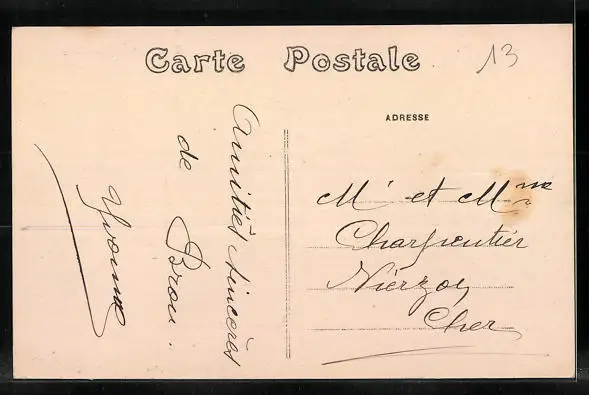 Carte Postale
13
ADRESSE
Amitiés sincères
de Brou.
Yvonne
Mr et Mme
Charpentier
Vierzon
Cher